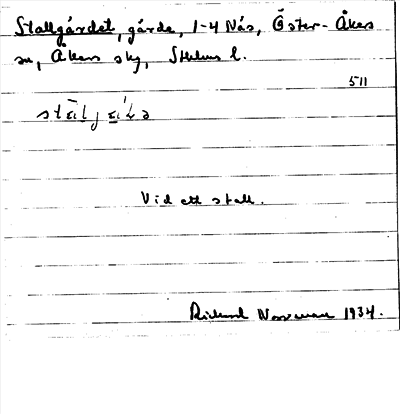 Stallgärdet, gärde, 1-4 Näs, Öster-Åkers
sn, Åkers skg, Sthlms l.
511
Vid ett stall.
Rickard Norrman 1934.